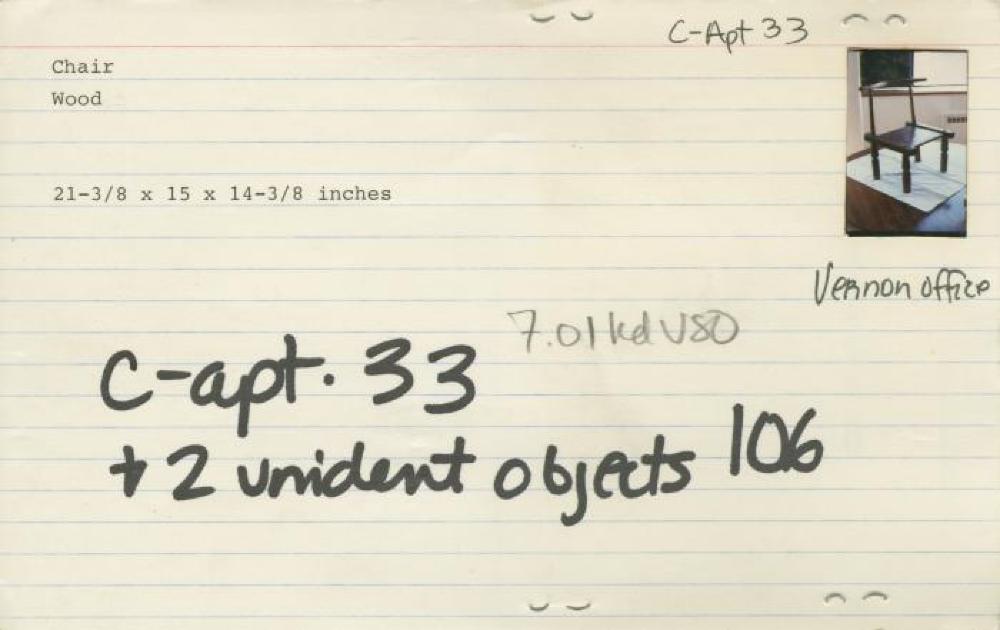 C-Apt 33
Chair
Wood
21-3/8 x 15 x 14-3/8 inches
Vernon office
7.01 kd VSO
C-apt. 33
+ 2 unident objects 106